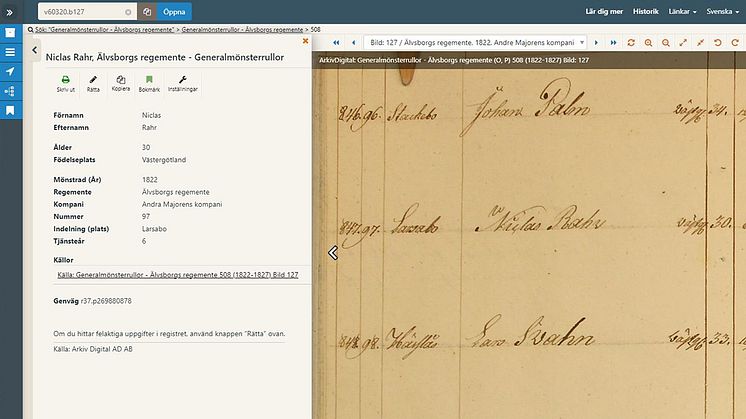 v60320.b127
Öppna
Lär dig mer Historik Länkar Svenska
Sök: "Generalmönsterrullor - Älvsborgs regemente" > Generalmönsterrullor - Älvsborgs regemente > 508
Niclas Rahr, Älvsborgs regemente - Generalmönsterrullor
Skriv ut Rätta Kopiera Bokmärk Inställningar
Förnamn Niclas
Efternamn Rahr
Ålder 30
Födelseplats Västergötland
Mönstrad (År) 1822
Regemente Älvsborgs regemente
Kompani Andra Majorens kompani
Nummer 97
Indelning (plats) Larsabo
Tjänsteår 6
Källor
Källa: Generalmönsterrullor - Älvsborgs regemente 508 (1822-1827) Bild 127
Genväg r37.p269880878
Om du hittar felaktiga uppgifter i registret, använd knappen "Rätta" ovan.
Källa: Arkiv Digital AD AB
Bild: 127 / Älvsborgs regemente. 1822. Andre Majorens kompani
ArkivDigital: Generalmönsterrullor - Älvsborgs regemente (O, P) 508 (1822-1827) Bild: 127
846. 96. Stackebo Johan Palm 34.
847. 97. Larsabo Niclas Rahr 30.
848. 98. Lars Svahn 33.